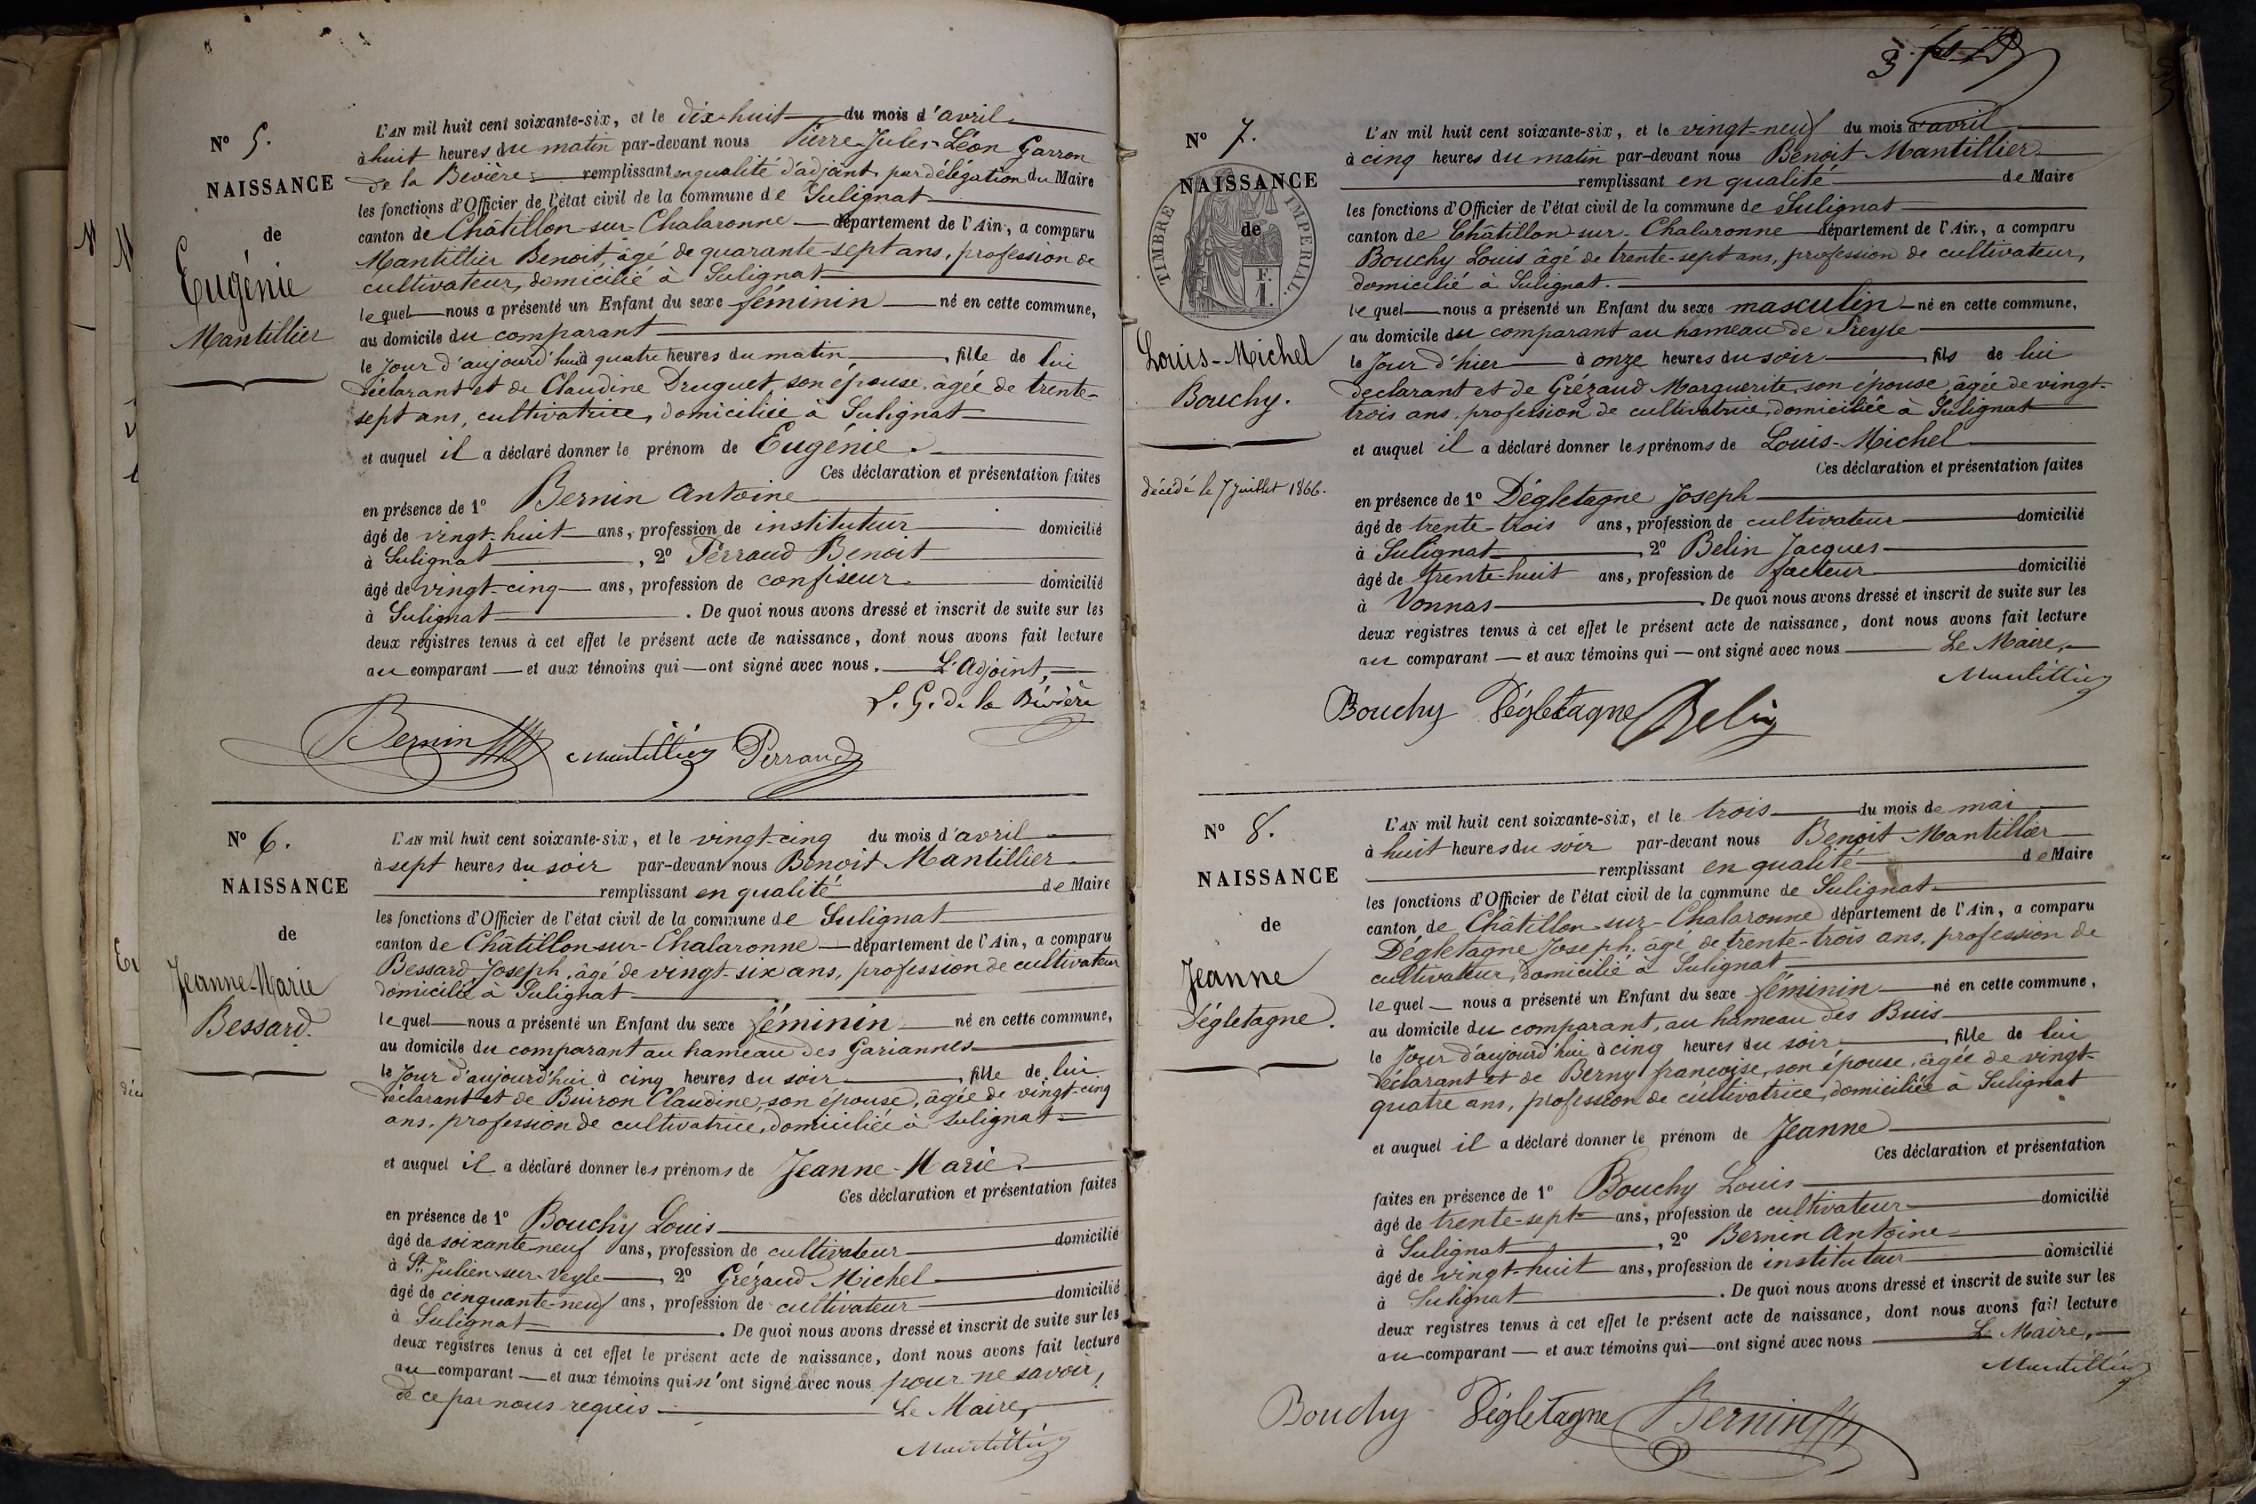 N° 5.
NAISSANCE
de
Eugénie
Mantillier
L'AN mil huit cent soixante-six, et le dix-huit du mois d'avril
à huit heures du matin par-devant nous Pierre-Jules-Léon Garron
de la Bévière remplissant en qualité d'adjoint par délégation du Maire
les fonctions d'Officier de l'état civil de la commune de Sulignat
canton de Châtillon-sur-Chalaronne département de l'Ain, a comparu
Mantillier Benoit, âgé de quarante-sept ans, profession de
cultivateur, domicilié à Sulignat
lequel nous a présenté un Enfant du sexe féminin né en cette commune,
au domicile du comparant
le Jour d'aujourd'hui à quatre heures du matin, fille de lui
déclarant et de Claudine Druguet son épouse, âgée de trente-
sept ans, cultivatrice, domiciliée à Sulignat
et auquel il a déclaré donner le prénom de Eugénie.
Ces déclaration et présentation faites
en présence de 1° Bernin Antoine
âgé de vingt-huit ans, profession de instituteur domicilié
à Sulignat, 2° Perraud Benoit
âgé de vingt-cinq ans, profession de confiseur domicilié
à Sulignat. De quoi nous avons dressé et inscrit de suite sur les
deux registres tenus à cet effet le présent acte de naissance, dont nous avons fait lecture
au comparant et aux témoins qui ont signé avec nous. L'Adjoint,
L. G. de la Bévière
Bernin Mantillier Perraud
N° 6.
NAISSANCE
de
Jeanne-Marie
Bessard.
L'AN mil huit cent soixante-six, et le vingt-cinq du mois d'avril
à sept heures du soir par-devant nous Benoit Mantillier
remplissant en qualité de Maire
les fonctions d'Officier de l'état civil de la commune de Sulignat
canton de Châtillon-sur-Chalaronne département de l'Ain, a comparu
Bessard Joseph, âgé de vingt-six ans, profession de cultivateur
domicilié à Sulignat
lequel nous a présenté un Enfant du sexe féminin né en cette commune,
au domicile du comparant au hameau des Gariannes
le Jour d'aujourd'hui à cinq heures du soir, fille de lui
déclarant et de Buiron Claudine, son épouse, âgée de vingt-cinq
ans, profession de cultivatrice, domiciliée à Sulignat
et auquel il a déclaré donner les prénoms de Jeanne-Marie.
Ces déclaration et présentation faites
en présence de 1° Bouchy Louis
âgé de soixante-neuf ans, profession de cultivateur domicilié
à St Julien-sur-Veyle, 2° Grézaud Michel
âgé de cinquante-neuf ans, profession de cultivateur domicilié
à Sulignat. De quoi nous avons dressé et inscrit de suite sur les
deux registres tenus à cet effet le présent acte de naissance, dont nous avons fait lecture
au comparant et aux témoins qui n'ont signé avec nous pour ne savoir,
de ce par nous requis Le Maire,
Mantillier
3
N° 7.
NAISSANCE
de
TIMBRE IMPERIAL.
F. 1.
Louis-Michel
Bouchy.
décédé le 7 juillet 1866.
L'AN mil huit cent soixante-six, et le vingt-neuf du mois d'avril
à cinq heures du matin par-devant nous Benoit Mantillier
remplissant en qualité de Maire
les fonctions d'Officier de l'état civil de la commune de Sulignat
canton de Châtillon-sur-Chalaronne département de l'Ain, a comparu
Bouchy Louis âgé de trente-sept ans, profession de cultivateur,
domicilié à Sulignat.
lequel nous a présenté un Enfant du sexe masculin né en cette commune,
au domicile du comparant au hameau de
le Jour d'hier à onze heures du soir, fils de lui
déclarant et de Grézaud Marguerite, son épouse, âgée de vingt-
trois ans, profession de cultivatrice, domiciliée à Sulignat
et auquel il a déclaré donner les prénoms de Louis-Michel
Ces déclaration et présentation faites
en présence de 1° Dégletagne Joseph
âgé de trente-trois ans, profession de cultivateur domicilié
à Sulignat, 2° Belin Jacques
âgé de trente-huit ans, profession de facteur domicilié
à Vonnas. De quoi nous avons dressé et inscrit de suite sur les
deux registres tenus à cet effet le présent acte de naissance, dont nous avons fait lecture
au comparant et aux témoins qui ont signé avec nous Le Maire,
Mantillier
Bouchy Dégletagne Belin
N° 8.
NAISSANCE
de
Jeanne
Dégletagne.
L'AN mil huit cent soixante-six, et le trois du mois de mai
à huit heures du soir par-devant nous Benoit Mantillier
remplissant en qualité de Maire
les fonctions d'Officier de l'état civil de la commune de Sulignat
canton de Châtillon-sur-Chalaronne département de l'Ain, a comparu
Dégletagne Joseph, âgé de trente-trois ans, profession de
cultivateur, domicilié à Sulignat
lequel nous a présenté un Enfant du sexe féminin né en cette commune,
au domicile du comparant, au hameau des Buis
le Jour d'aujourd'hui à cinq heures du soir, fille de lui
déclarant et de Berny françoise, son épouse, âgée de vingt-
quatre ans, profession de cultivatrice, domiciliée à Sulignat
et auquel il a déclaré donner le prénom de Jeanne
Ces déclaration et présentation
faites en présence de 1° Bouchy Louis
âgé de trente-sept ans, profession de cultivateur domicilié
à Sulignat, 2° Bernin Antoine
âgé de vingt-huit ans, profession de instituteur domicilié
à Sulignat. De quoi nous avons dressé et inscrit de suite sur les
deux registres tenus à cet effet le présent acte de naissance, dont nous avons fait lecture
au comparant et aux témoins qui ont signé avec nous Le Maire,
Mantillier
Bouchy Dégletagne Bernin